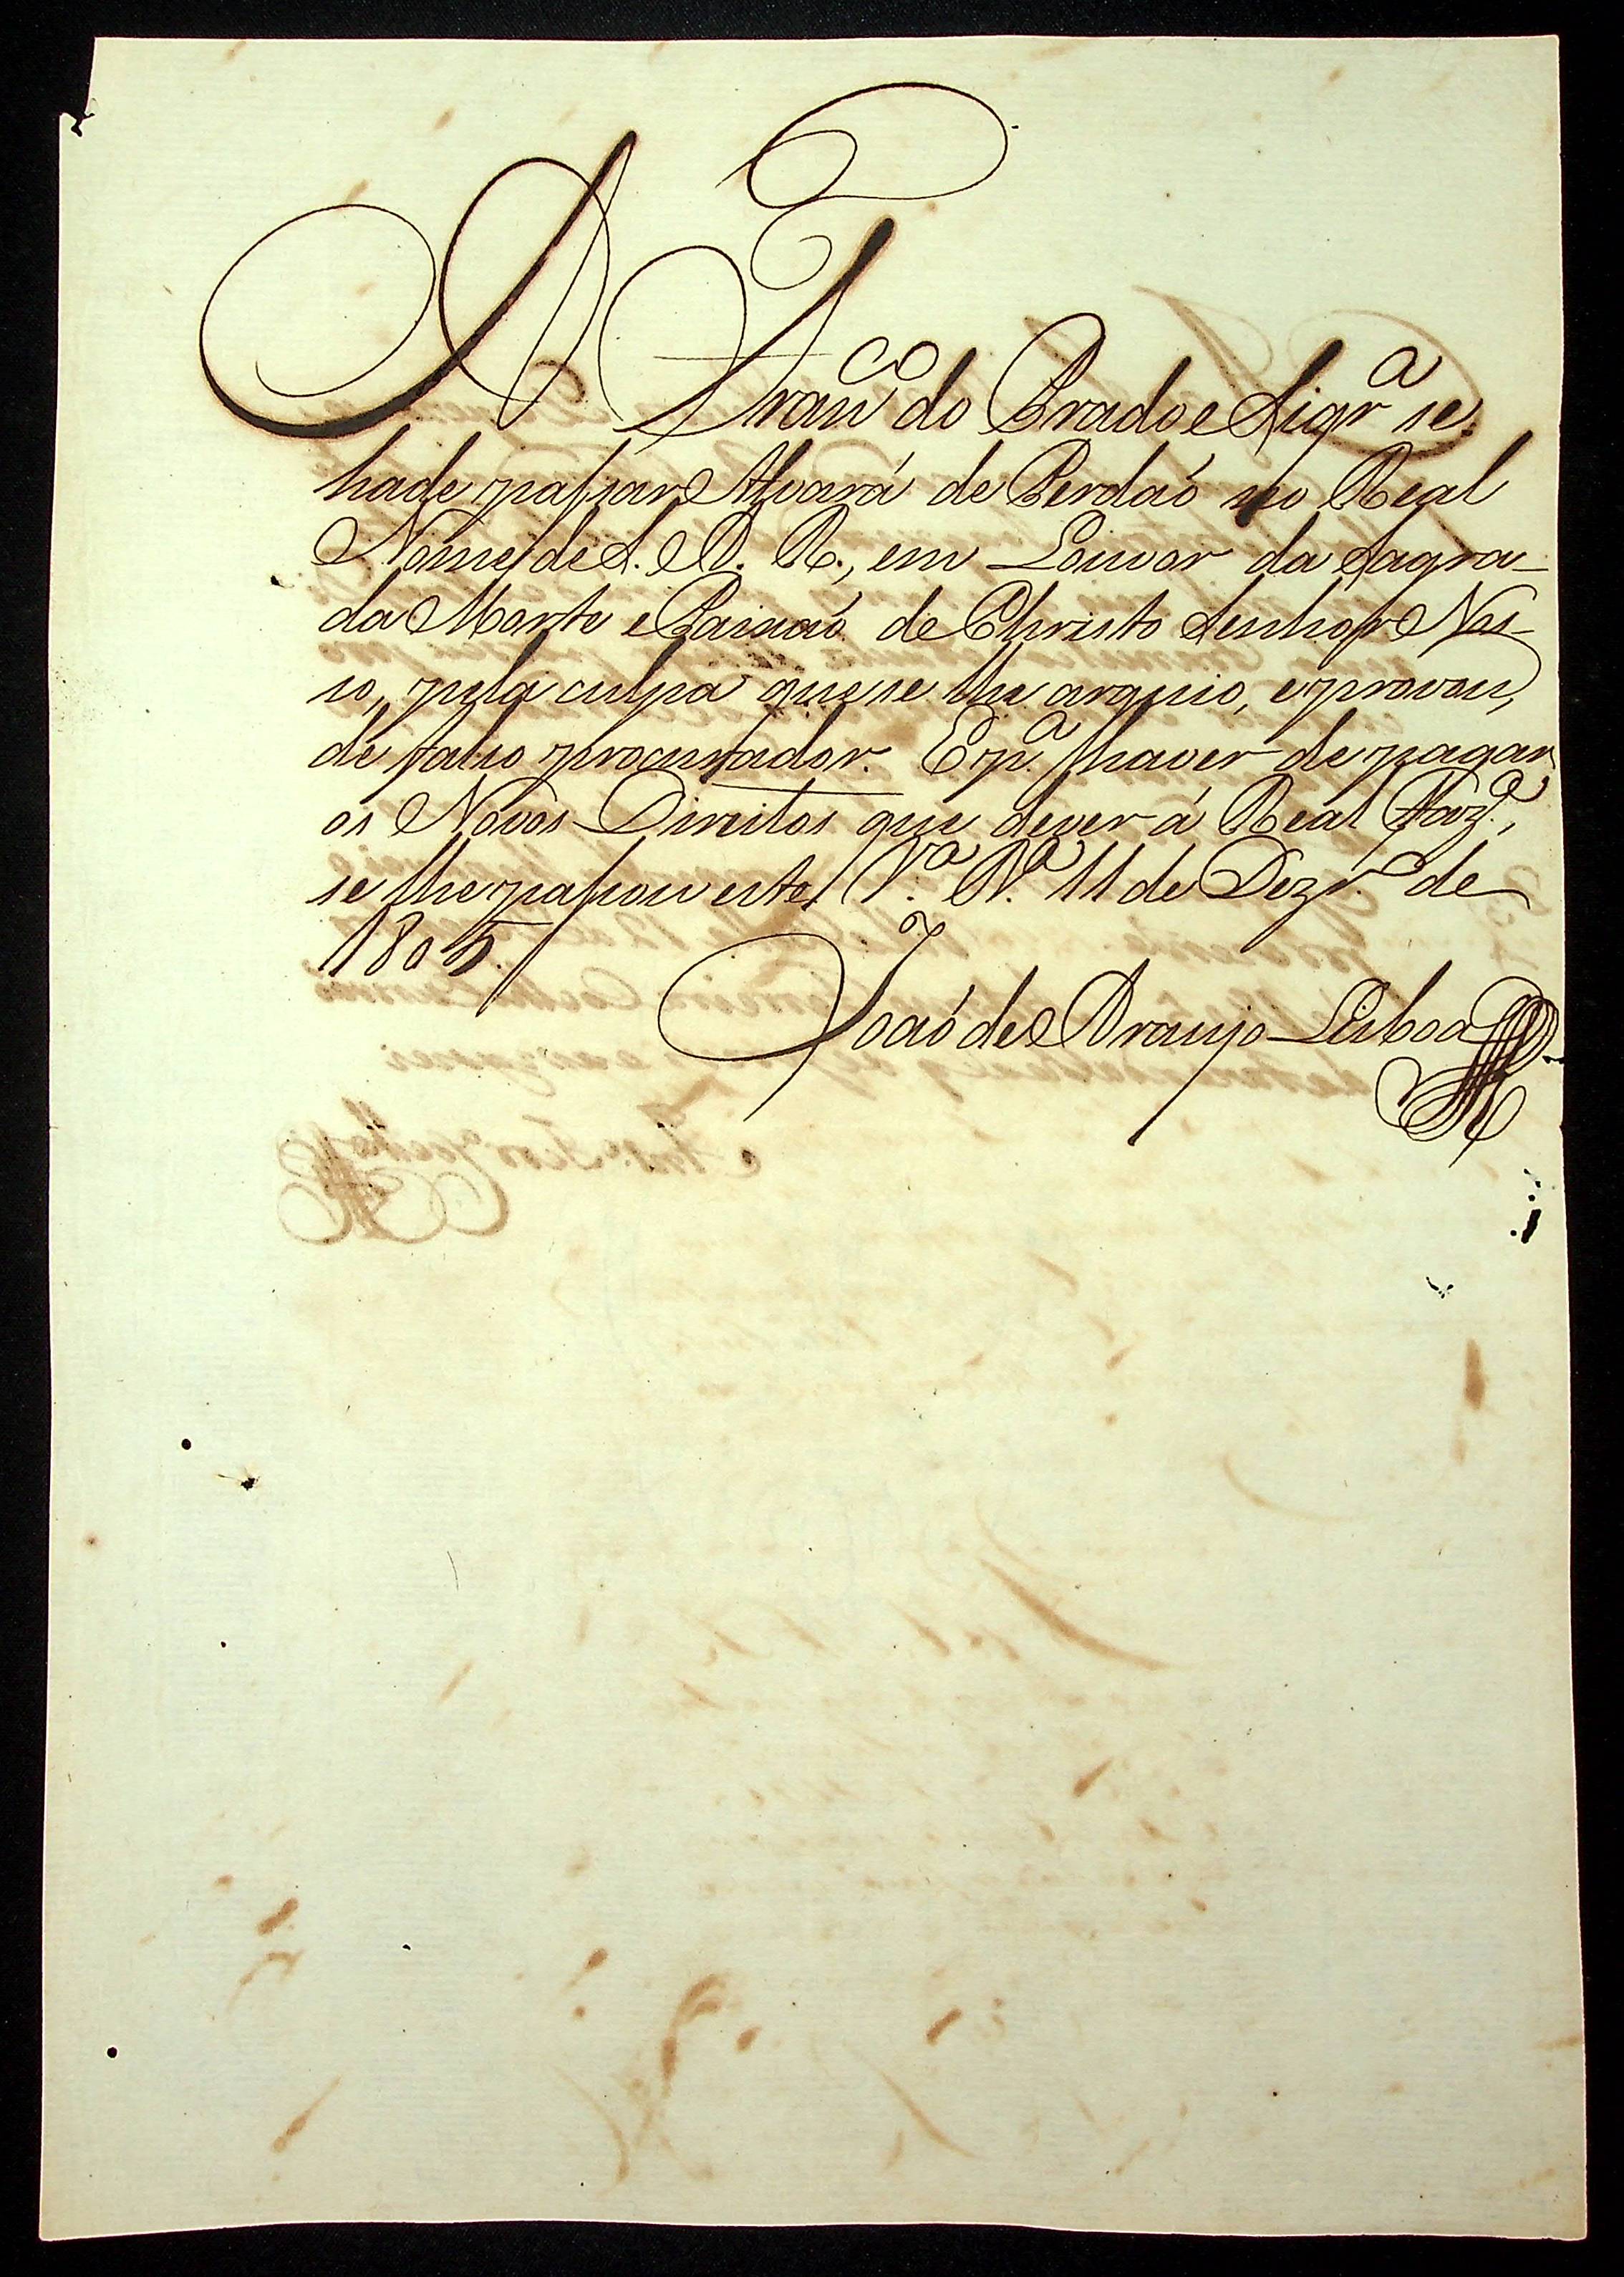 A Fran^co do Prado e Siqr^a se
hade passar Alvará de Perdaõ no Real
Nome de S. A. R., em Louvor da Sagra-
da Morte e Paixaõ de Christo Senhor Nos-
so, pela culpa que se lhe arguio, e provou,
de falso procurador. E p^a haver de pagar
os Novos Direitos que dever á Real Faz^a,
se lhe passou este. V^a R^a 11 de Dezr^o de
1805.
Joaõ de Araujo Lisboa